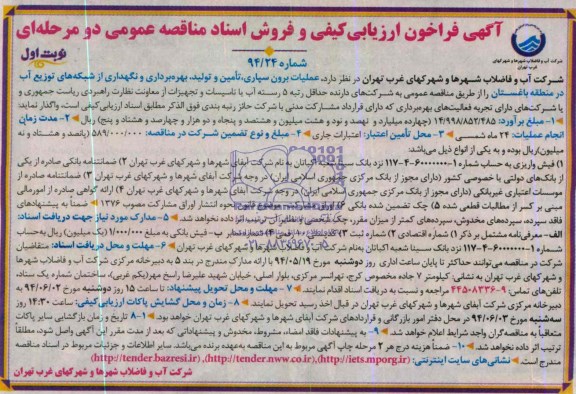 آگهی فراخوان ارزیابی‌کیفی و فروش اسناد مناقصه عمومی دو مرحله‌ای
شماره ۹۴/۲۴
نوبت اول
شرکت آب و فاضلاب شهرها و شهرکهای غرب تهران
شرکت آب و فاضلاب شهرها و شهرکهای غرب تهران در نظر دارد، عملیات برون سپاری، تأمین و تولید، بهره‌برداری و نگهداری از شبکه‌های توزیع آب
در منطقه باغستان را از طریق مناقصه عمومی به شرکت‌های دارنده حداقل رتبه ۵ رسته آب یا تاسیسات و تجهیزات از معاونت نظارت راهبردی ریاست جمهوری و
یا شرکت‌های دارای تجربه فعالیت‌های بهره‌برداری که دارای قرارداد مشارکت مدنی با شرکت حائز رتبه بندی فوق الذکر مطابق اسناد ارزیابی کیفی است، واگذار نماید:
۱- مبلغ برآورد: ۱۴/۶۹۸/۸۵۲/۴۸۵ (چهارده میلیارد و ششصد و نود و هشت میلیون و هشتصد و پنجاه و دو هزار و چهارصد و هشتاد و پنج) ریال ۲- مدت زمان
انجام عملیات: ۲۴ ماه شمسی ۳- محل تأمین اعتبار: اعتبارات جاری ۴- مبلغ و نوع تضمین شرکت در مناقصه: ۵۸۹/۰۰۰/۰۰۰ (پانصد و هشتاد و نه
میلیون)ریال بوده و به یکی از انواع ذیل می‌باشد:
۱) فیش واریزی به حساب شماره ۱-۶۰۰۰۰۰۰-۴-۱۱۷ نزد بانک اکباتان به نام شرکت آبفای شهرها و شهرکهای غرب تهران ۲) ضمانتنامه بانکی صادره از یکی
از بانک‌های دولتی یا خصوصی کشور (دارای مجوز از بانک مرکزی جمهوری اسلامی ایران) در وجه شرکت آبفای شهرها و شهرکهای غرب تهران ۳) ضمانتنامه صادره از
موسسات اعتباری غیربانکی (دارای مجوز از بانک مرکزی جمهوری اسلامی ایران) در وجه شرکت آبفای شهرها و شهرکهای غرب تهران ۴) ارائه گواهی صادره از امورمالی
مبنی بر کسر از مطالبات قطعی شده ۵) چک تضمین شده بانکی ۶) اوراق مشارکت نحوه انتشار اوراق مشارکت مصوب ۱۳۷۶ ضمناً به پیشنهادهای
فاقد سپرده، سپرده‌های مخدوش، سپرده‌های کمتر از میزان مقرر، چک شخصی و نظایر آن ترتیب اثر داده نخواهد شد. ۵- مدارک مورد نیاز جهت دریافت اسناد:
الف- معرفی‌نامه مشتمل بر ذکر ۱) شماره اقتصادی ۲) شماره ثبت ب- فیش بانکی به مبلغ ۱/۰۰۰/۰۰۰ (یک میلیون) ریال به‌حساب
شماره ۱-۶۰۰۰۰۰۰-۴-۱۱۷ نزد بانک سینا شعبه اکباتان به‌نام شرکت آبفای شهرها و شهرکهای غرب تهران ۶- مهلت و محل دریافت اسناد: متقاضیان
شرکت در مناقصه می‌توانند حداکثر تا پایان ساعت اداری روز دوشنبه مورخ ۹۴/۰۵/۱۹ با ارائه مدارک مندرج در بند ۵ به دبیرخانه مرکزی شرکت آب و فاضلاب شهرها
و شهرکهای غرب تهران به نشانی: کیلومتر ۷ جاده مخصوص کرج، تهرانسر مرکزی، بلوار اصلی، خیابان شهید علیرضا راسخ مهر(یکم غربی)، ساختمان شماره یک ستاد،
تلفن‌های تماس: ۹-۴۴۵۰۸۳۳۶ مراجعه و نسبت به دریافت اسناد اقدام نمایند. ۷- مهلت و محل تحویل پیشنهاد: تا ساعت ۱۵ روز دوشنبه مورخ ۹۴/۰۶/۰۲ به
دبیرخانه مرکزی شرکت آبفای شهرها و شهرکهای غرب تهران در قبال اخذ رسید تحویل نمایند. ۸- زمان و محل گشایش پاکات ارزیابی‌کیفی: ساعت ۱۴:۳۰ روز
سه‌شنبه مورخ ۹۴/۰۶/۰۳ در محل دفتر امور بازرگانی و قراردادهای شرکت آبفای شهرها و شهرکهای غرب تهران خواهد بود. ۸-۱ تاریخ و زمان بازگشایی سایر پاکات
متعاقباً به مناقصه‌گران واجد شرایط اعلام خواهد شد. ۹- به پیشنهادات فاقد امضاء، مشروط، مخدوش و پیشنهاداتی که بعد از مدت مقرر این آگهی واصل شود، مطلقاً
ترتیب اثر داده نخواهد شد. ۱۰- ضمناً هزینه درج هر ۲ مرحله چاپ آگهی مربوط به این مناقصه به‌عهده برنده می‌باشد. سایر اطلاعات و جزئیات مربوط در اسناد مناقصه
مندرج است. نشانی‌های سایت اینترنتی: (http://iets.mporg.ir), (http://tender.nww.co.ir), (http://tender.bazresi.ir)
شرکت آب و فاضلاب شهرها و شهرکهای غرب تهران